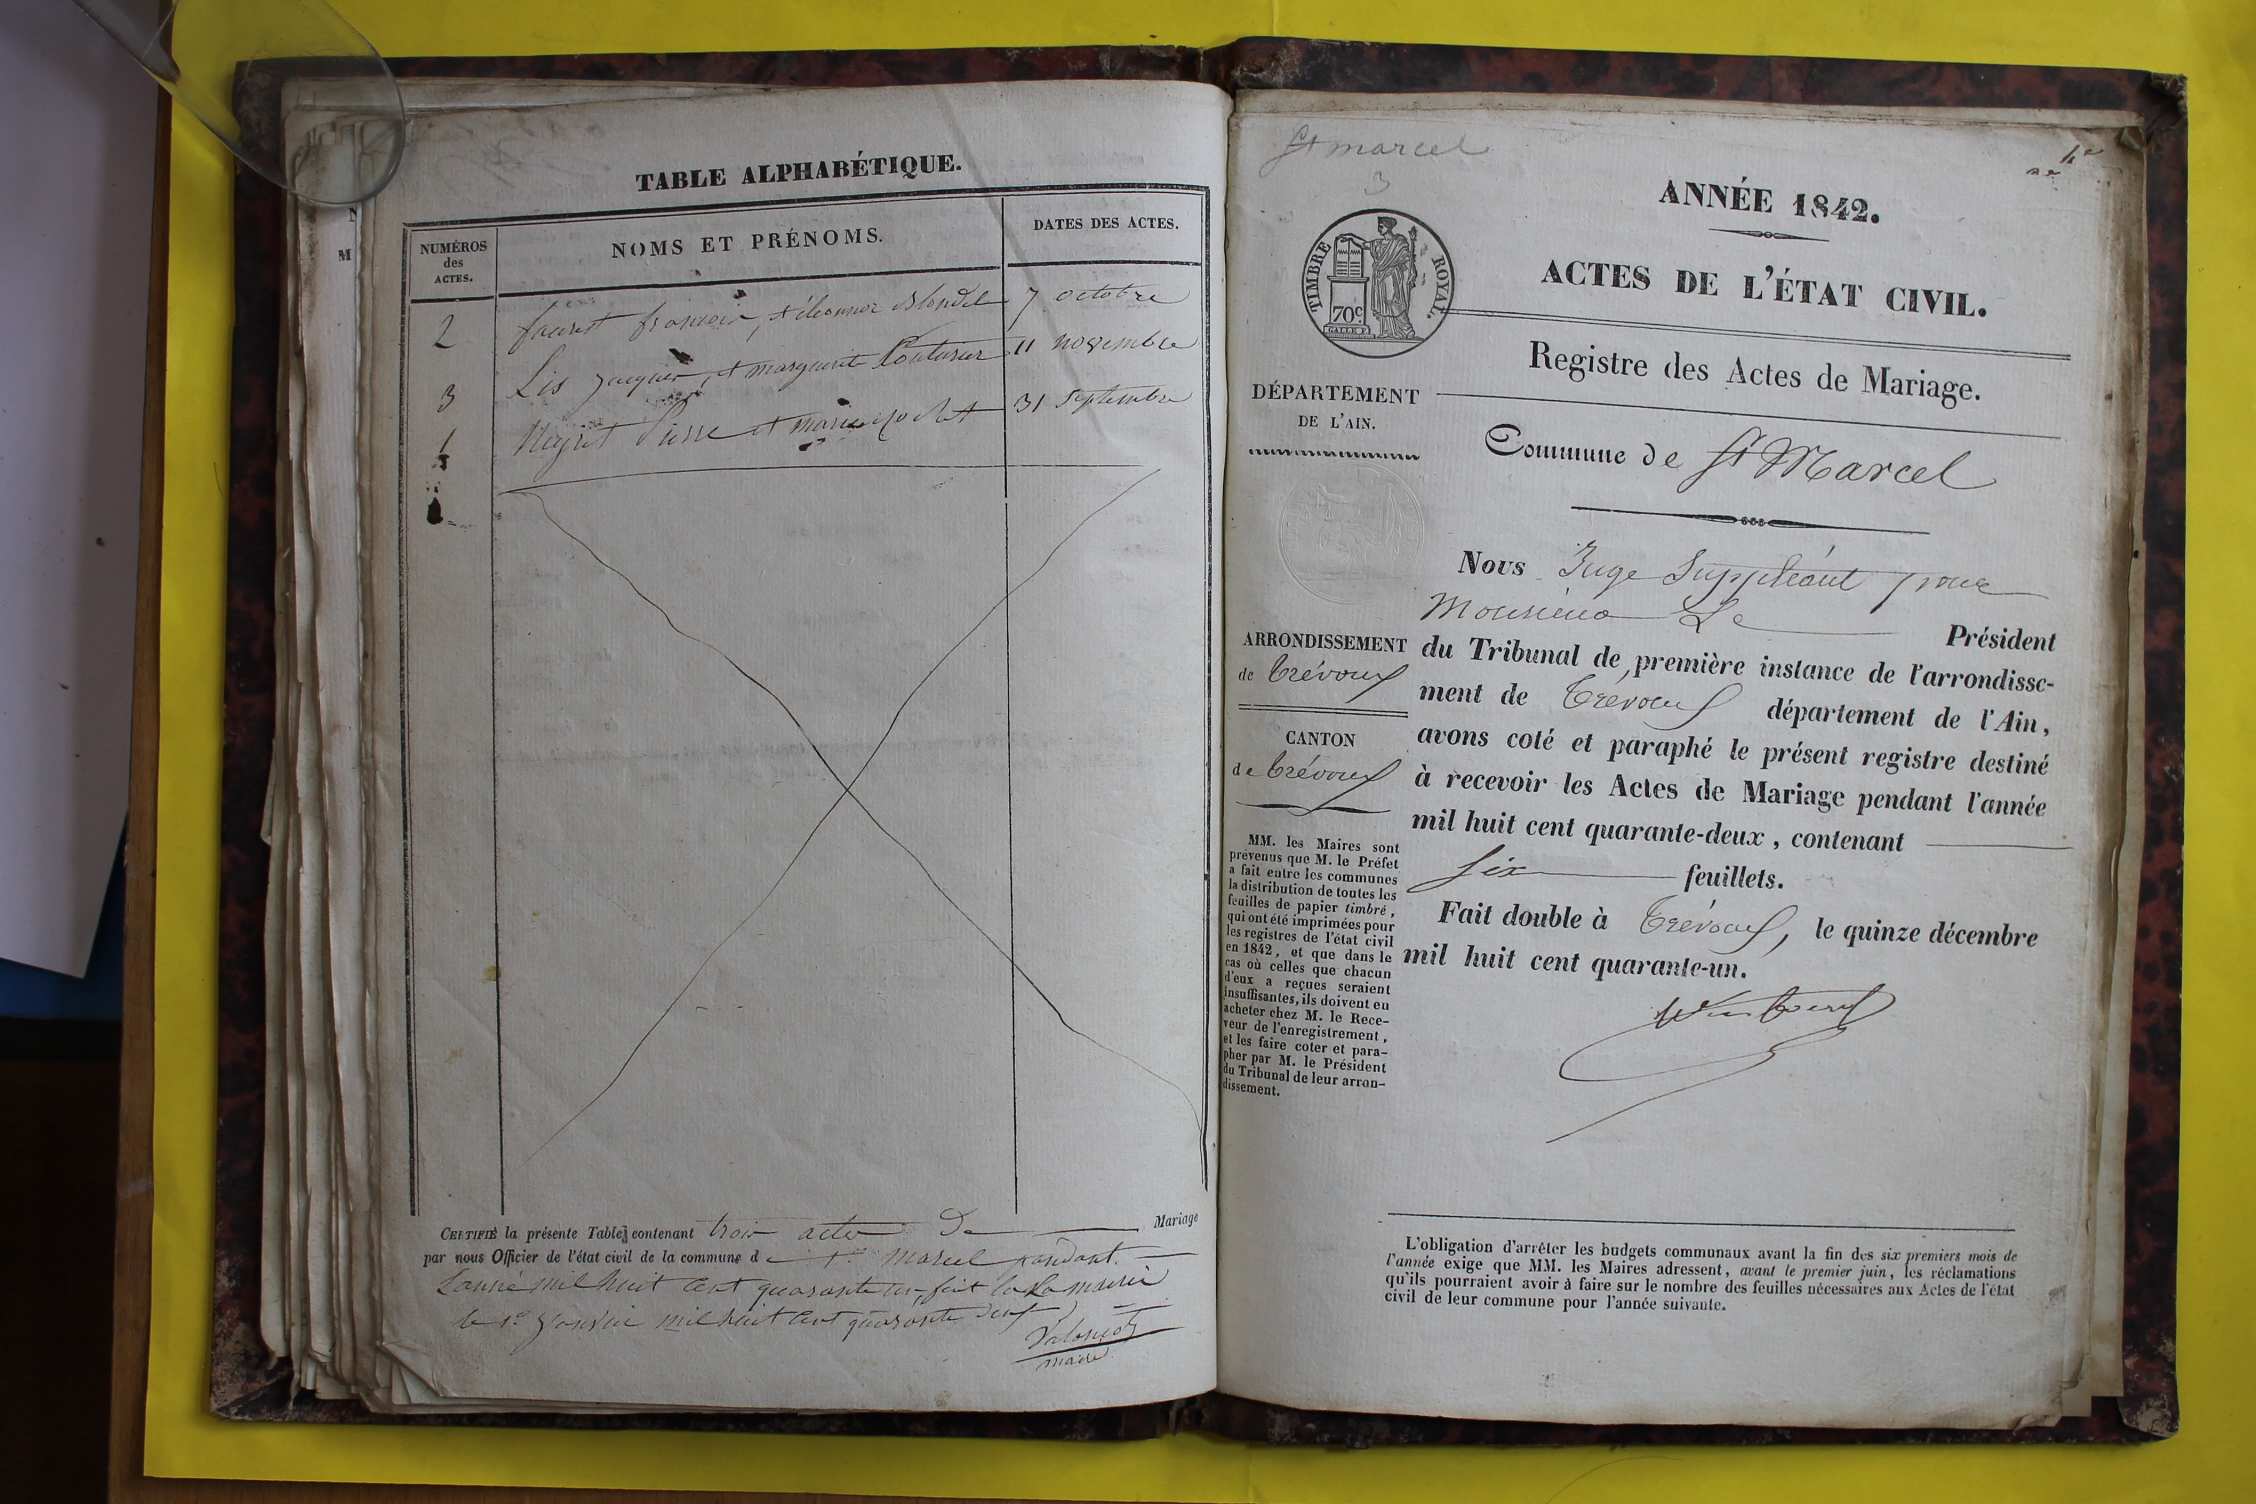 TABLE ALPHABÉTIQUE.
NUMÉROS
des
ACTES.
NOMS ET PRÉNOMS.
DATES DES ACTES.
2 françois, et éléonnor Blondel 7 octobre
3 Lis Jacques, et marguerite Couturier 11 novembre
1 Neyret Pierre et marie 31 septembre
CERTIFIÉ la présente Table contenant trois actes De Mariage
par nous Officier de l'état civil de la commune de St. marcel pendant
L'année mil huit Cent quarante un, fait à La mairie
le 1er Janvier mil huit Cent quarante deux
maire
St marcel
3
ANNÉE 1842.
ACTES DE L'ÉTAT CIVIL.
Registre des Actes de Mariage.
TIMBRE ROYAL.
70c.
DÉPARTEMENT
DE L'AIN.
Commune de St Marcel
Nous Juge Suppléant pour
Monsieur Le Président
ARRONDISSEMENT
de Trévoux
CANTON
de Trévoux
du Tribunal de première instance de l'arrondisse-
ment de Trévoux département de l'Ain,
avons coté et paraphé le présent registre destiné
à recevoir les Actes de Mariage pendant l'année
mil huit cent quarante-deux, contenant
Six feuillets.
Fait double à Trévoux, le quinze décembre
mil huit cent quarante-un.
MM. les Maires sont
prévenus que M. le Préfet
a fait entre les communes
la distribution de toutes les
feuilles de papier timbré,
qui ont été imprimées pour
les registres de l'état civil
en 1842, et que dans le
cas où celles que chacun
d'eux a reçues seraient
insuffisantes, ils doivent en
acheter chez M. le Rece-
veur de l'enregistrement,
et les faire coter et para-
pher par M. le Président
du Tribunal de leur arron-
dissement.
L'obligation d'arrêter les budgets communaux avant la fin des six premiers mois de
l'année exige que MM. les Maires adressent, avant le premier juin, les réclamations
qu'ils pourraient avoir à faire sur le nombre des feuilles nécessaires aux Actes de l'état
civil de leur commune pour l'année suivante.